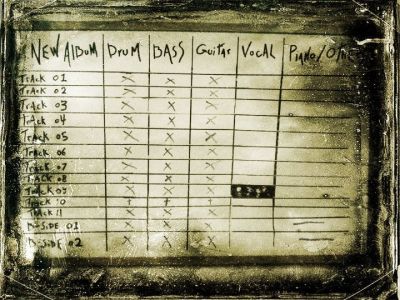 NEW ALBUM DRUM BASS GUITAR VOCAL PIANO/
TRACK 01 X X X
TRACK 02 X X X
TRACK 03 X X X
TRACK 04 X X X
TRACK 05 X X X
TRACK 06 X X X
TRACK 07 X X X
TRACK 08 X X X
TRACK 09 X X X
TRACK 10 X X X
TRACK 11 X X X
B-SIDE 01 X X X
B-SIDE 02 X X X